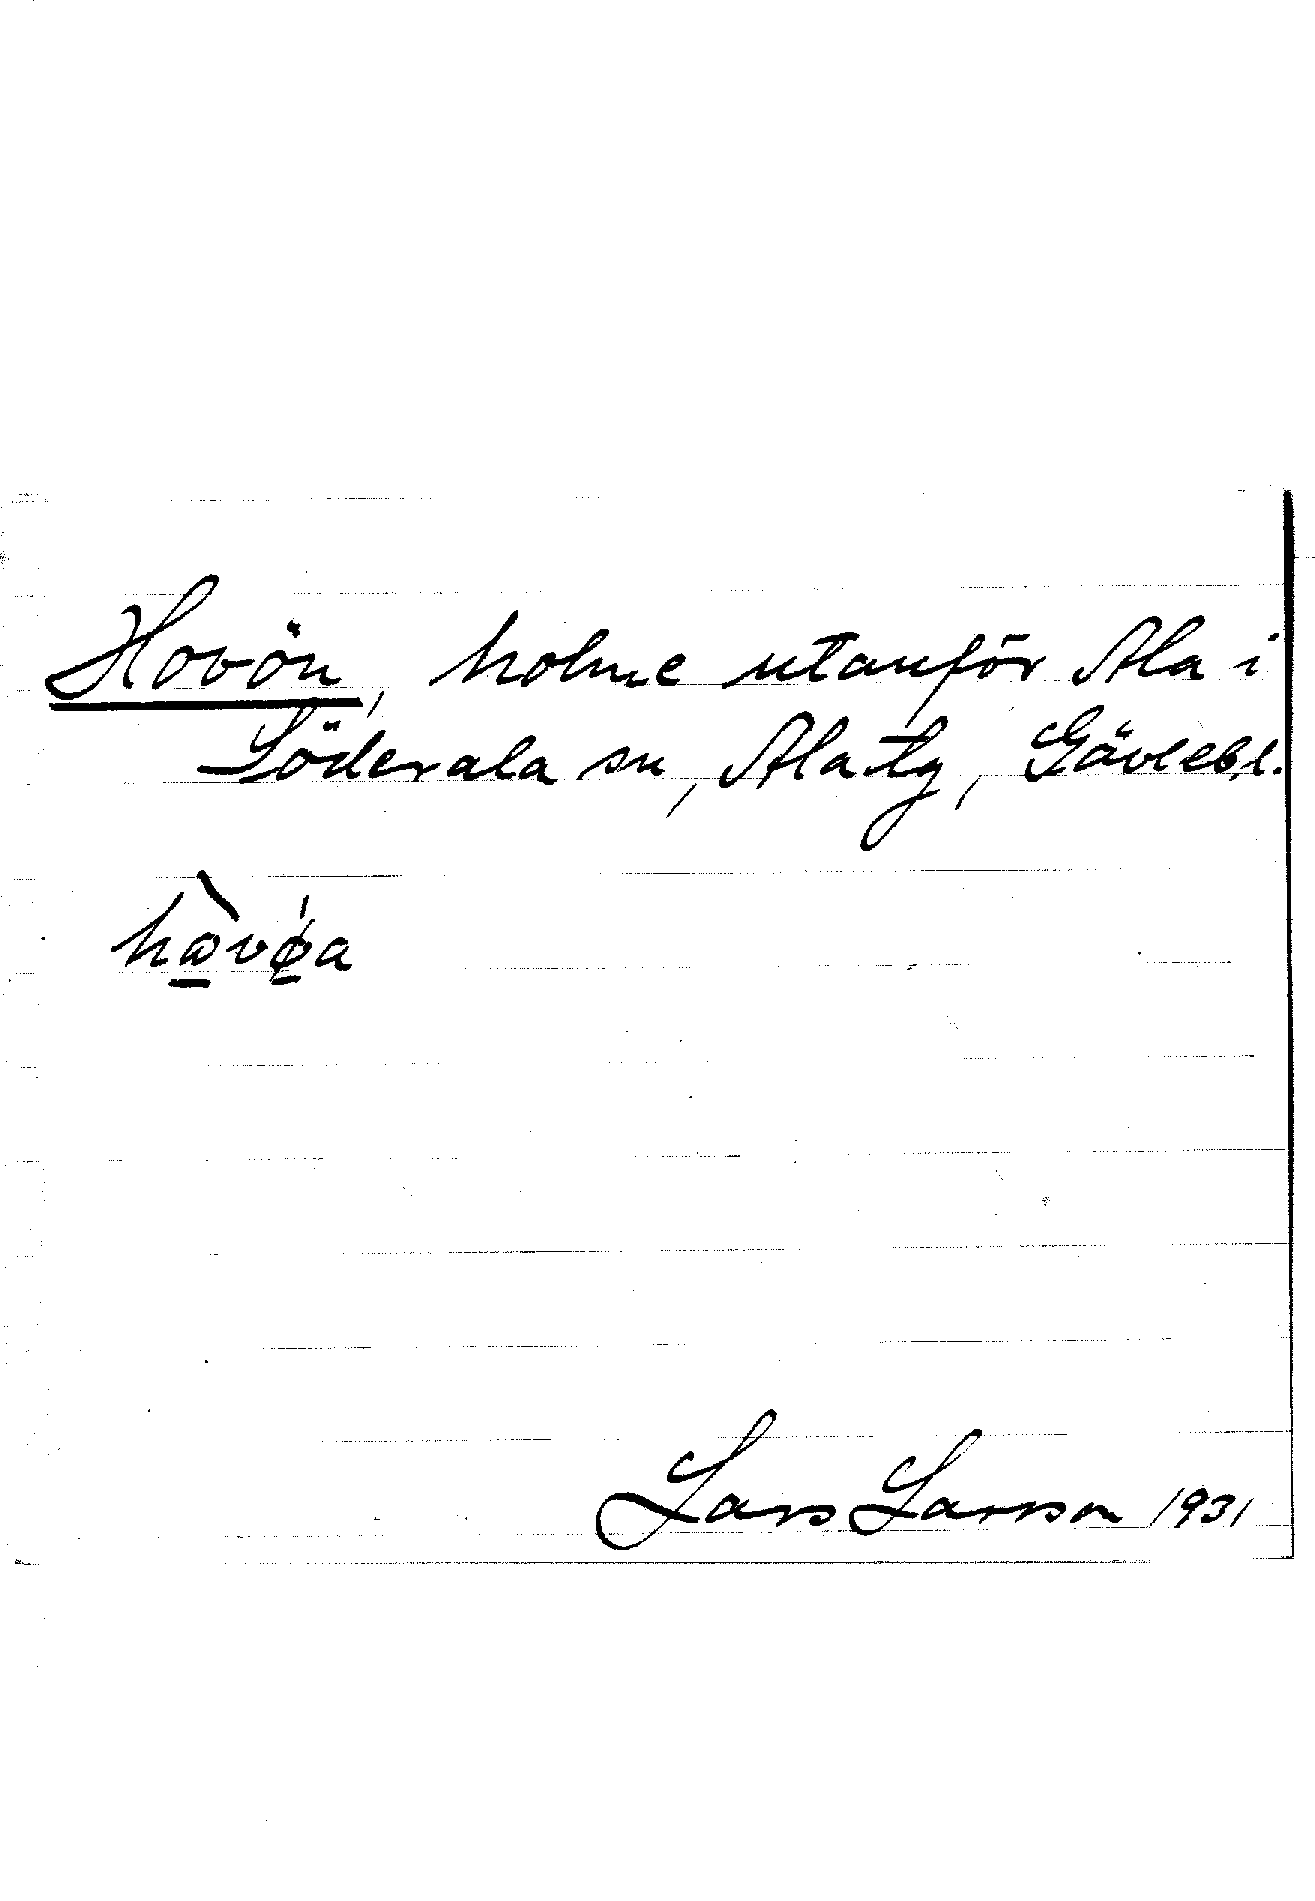 Hovön, holme utanför Ala i
Söderala sn, Ala tg, Gävlebl.
hàvǿa
Lars Larsson 1931